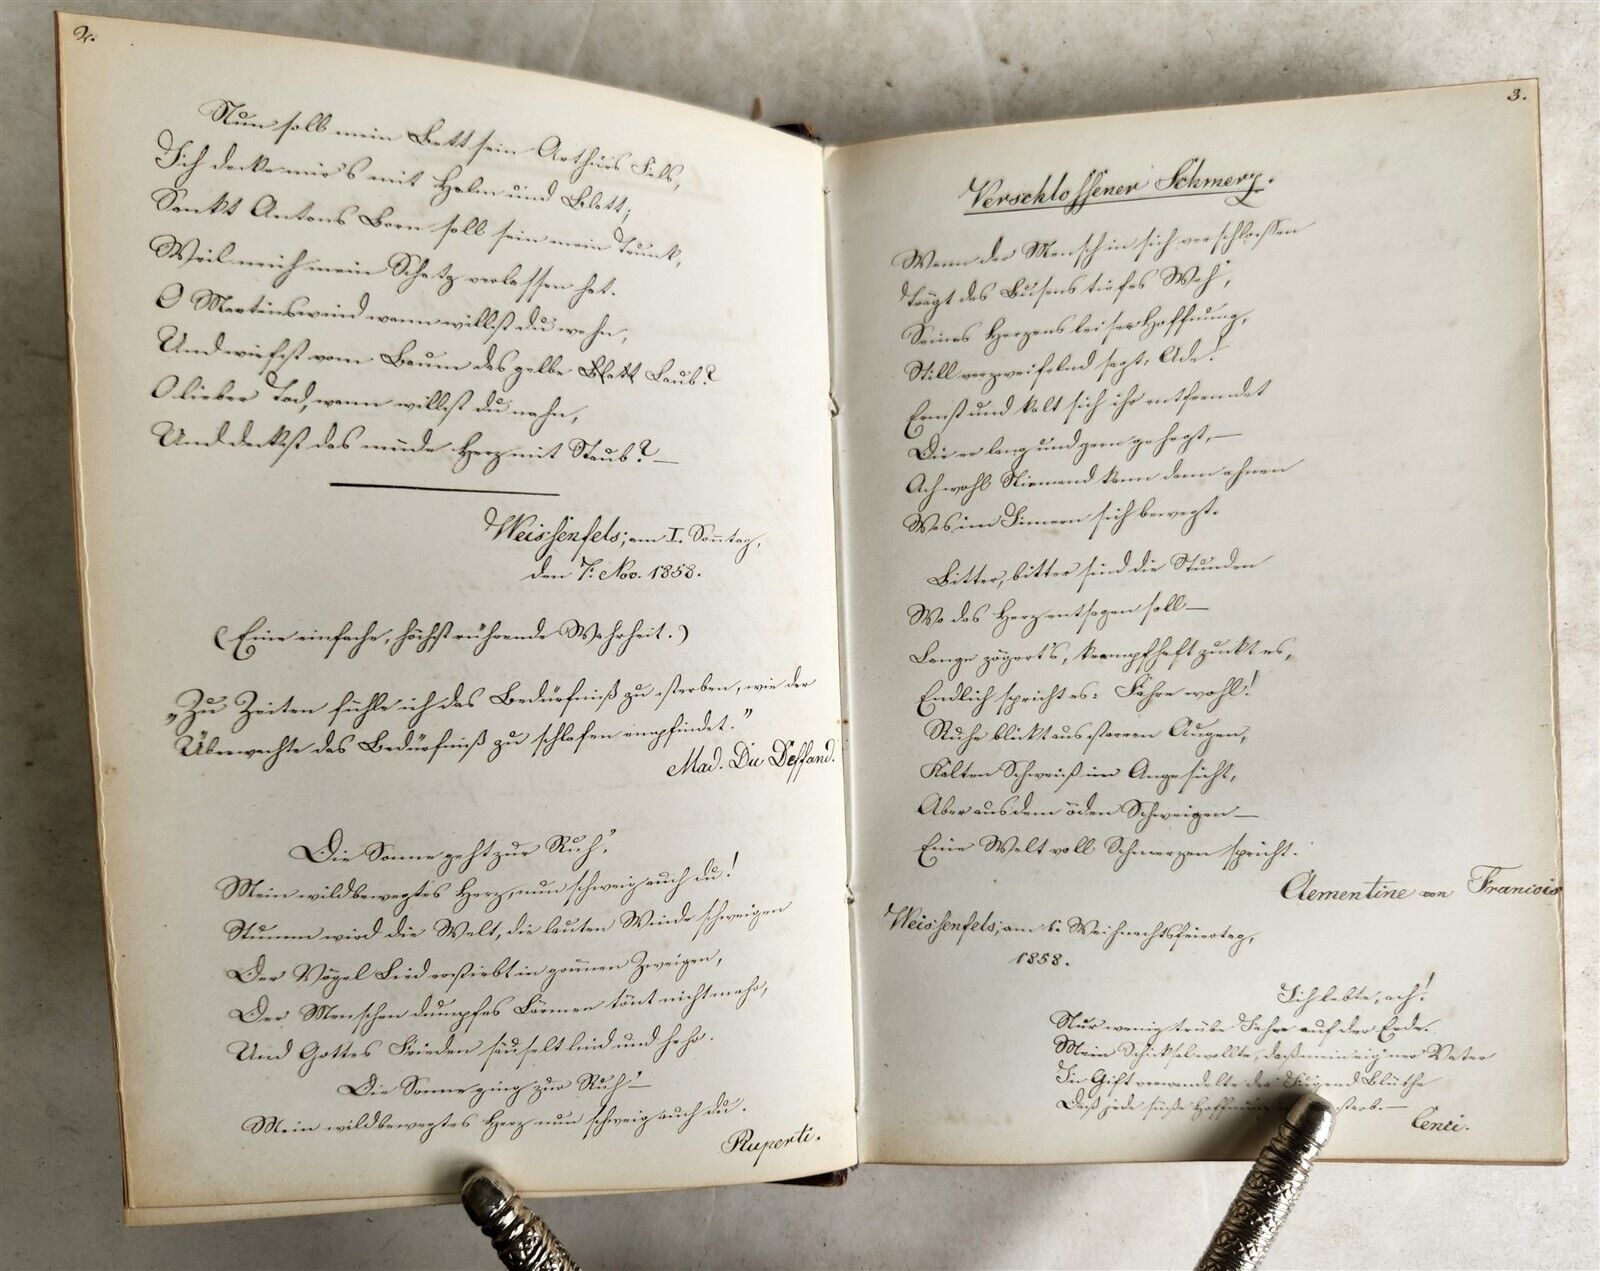 2.
Nun soll mein Bett sein Arthurs Fels,
Ich decke mir's mit Halm und Blatt;
Sankt Antons Born soll sein mein Trunk,
Weil mich mein Schatz verlassen hat.
O Martinswind wann willst du wehn,
Und wirfst vom Baum das gelbe Blatt Laub?
O lieber Tod, wann willst du nahn,
Und deckst das müde Herz mit Staub? —
Weissenfels; am I. Sonntag,
den 7: Nov. 1858.
(Eine einfache, höchst rührende Wahrheit.)
„Zu Zeiten fühle ich das Bedürfniß zu sterben, wie der
Überwachte das Bedürfniß zu schlafen empfindet."
Mad. Du Deffand.
Die Sonne geht zur Ruh',
Mein wildbewegtes Herz, nun schweig auch du!
Stumm wird die Welt, die lauten Winde schweigen
Der Vögel Lied erstirbt in grünen Zweigen,
Der Menschen dumpfes Lärmen tönt nicht mehr,
Und Gottes Frieden säuselt lind und hehr.
Die Sonne ging zur Ruh' —
Mein wildbewegtes Herz nun schweig auch du.
Ruperti.
3.
Verschlossener Schmerz.
Wenn der Mensch in sich verschlossen
Trägt des Busens tiefes Weh',
Seines Herzens leiser Hoffnung,
Still verzweifelnd sagt: Ade!
Ernst und kalt sich ihr entfremdet
Die er lang und gern gehegt, —
Ach wohl Niemand kann dann ahnen
Was im Innern sich bewegt.
Bitter, bitter sind die Stunden
Wo das Herz entsagen soll —
Lange zögert's, krampfhaft zuckt es,
Endlich spricht es: Fahre wohl!
Ruhe blickt aus starren Augen,
Kalten Schweiß im Angesicht,
Aber aus dem öden Schweigen —
Eine Welt voll Schmerzen spricht.
Clementine von Francois
Weissenfels; am 1. Weihnachtsfeiertag,
1858.
Ich lebte, ach!
Nur wenig trübe Jahre auf der Erde.
Mein Schicksal wollte, daß mein eig'ner Vater
In Gift verwandelte der Jugend Blüthe
Daß jede süße Hoffnung starb. —
Cenci.